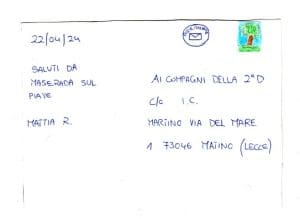 22/04/24
SALUTI DA
MASERADA SUL
PIAVE
MATTIA R.
AI COMPAGNI DELLA 2°D
c/o I.C.
MARTINO VIA DEL MARE
1 73046 MATINO (LECCE)